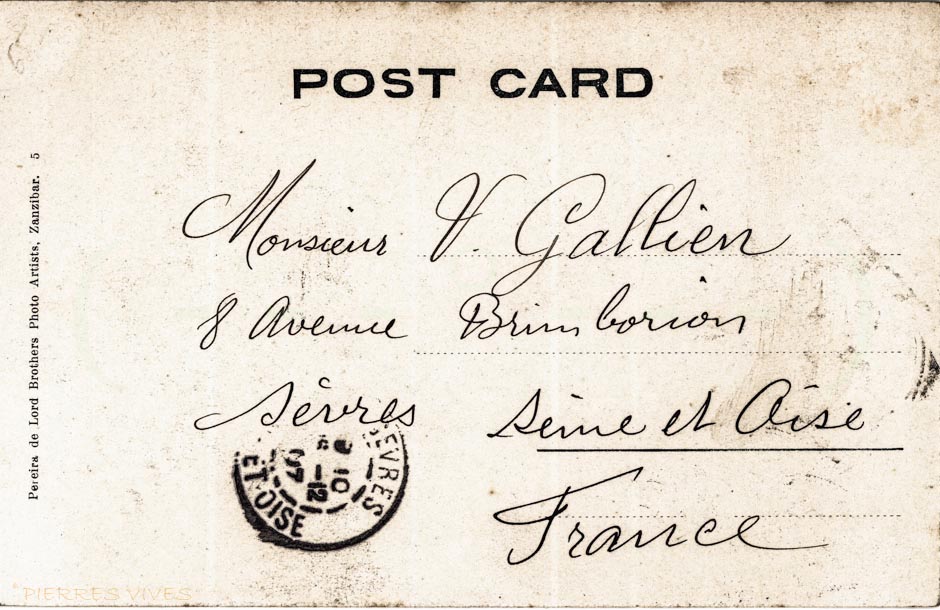 POST CARD
Pereira de Lord Brothers Photo Artists, Zanzibar. 5
Monsieur V. Gallien
8 Avenue Brimborion
Sèvres Seine et Oise
France
SEVRES
10
12
07
ET-OISE
PIERRES VIVES